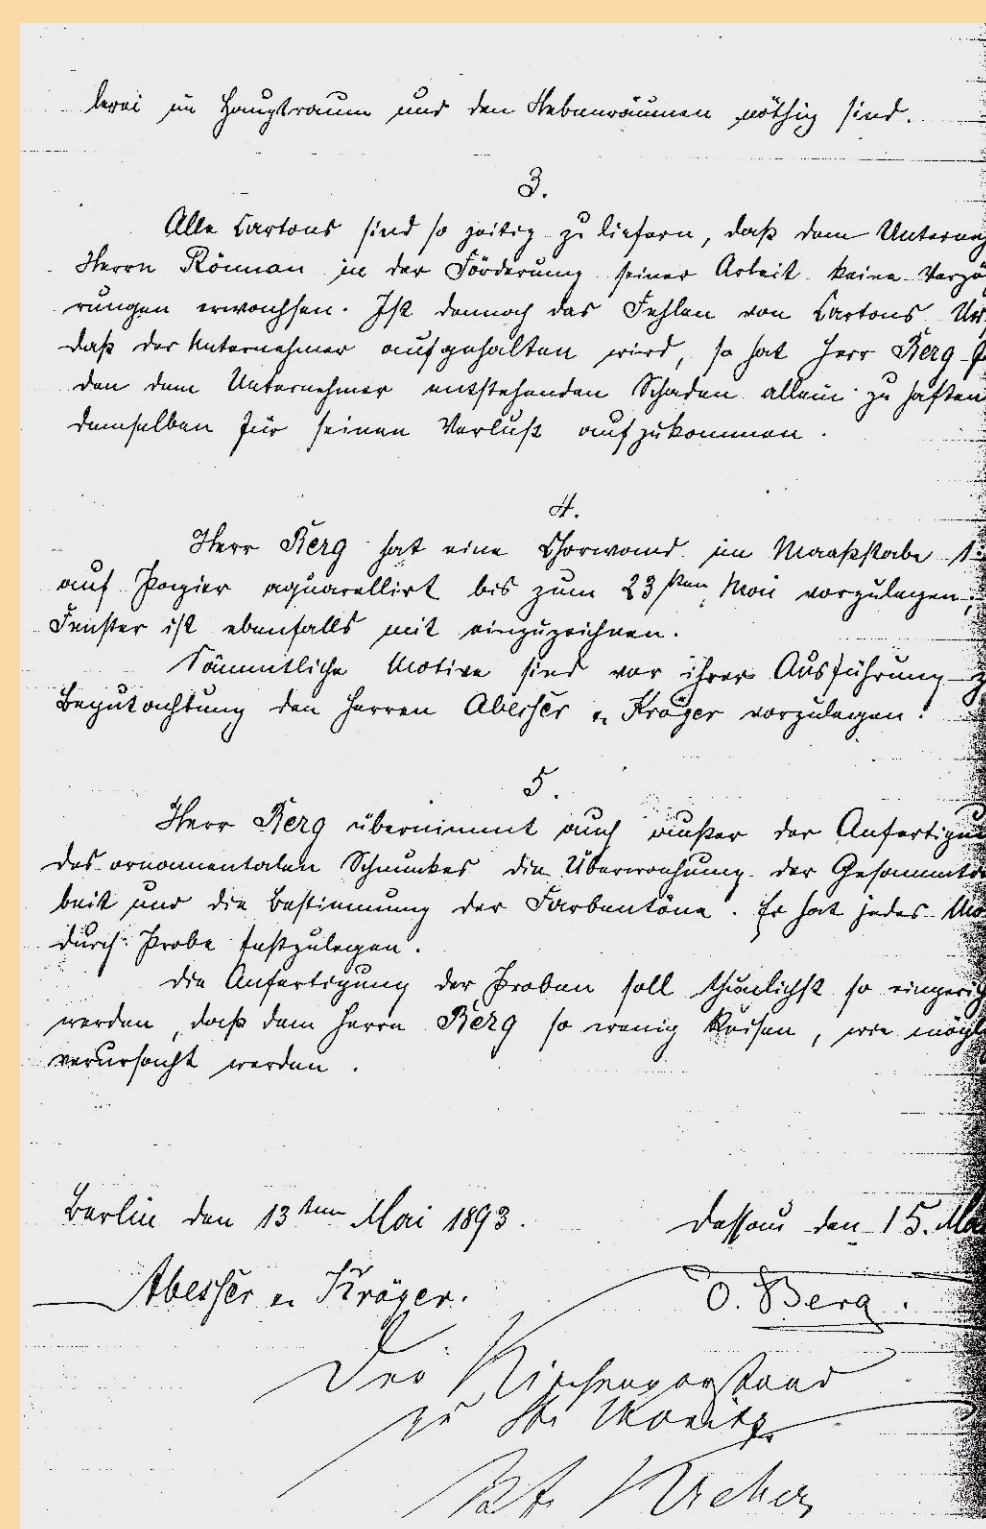 lerei im Hauptraum und den Nebenräumen nöthig sind.
3.
Alle Cartons sind so zeitig zu liefern, daß dem Unterneh
Herrn Rönnau in der Förderung seiner Arbeit keine Verzö
rungen erwachsen. Ist dennoch das Fehlen von Cartons Ur
daß der Unternehmer aufgehalten wird, so hat Herr Berg
den dem Unternehmer entstehenden Schaden allein zu haften
demselben für seinen Verlust aufzukommen.
4.
Herr Berg hat eine Chorwand im Maaßstabe 1:
auf Papier aquarellirt bis zum 23sten Mai vorzulegen;
Fenster ist ebenfalls mit einzuzeichnen.
Sämmtliche Motive sind vor ihrer Ausführung z
Begutachtung den Herren Abesser u. Kröger vorzulegen.
5.
Herr Berg übernimmt auch außer der Anfertigun
des ornamentalen Schmuckes die Überwachung der Gesammta
beit und die Bestimmung der Farbentöne. Er hat jedes Mo
durch Probe festzulegen.
Die Anfertigung der Proben soll thunlichst so eingerich
werden, daß dem Herrn Berg so wenig Reisen, wie mögl
verursacht werden.
Berlin den 13ten Mai 1893.
Dessau den 15. Ma
Abesser u. Kröger.
O. Berg.
Der Kirchenvorstand
zu St. Moritz